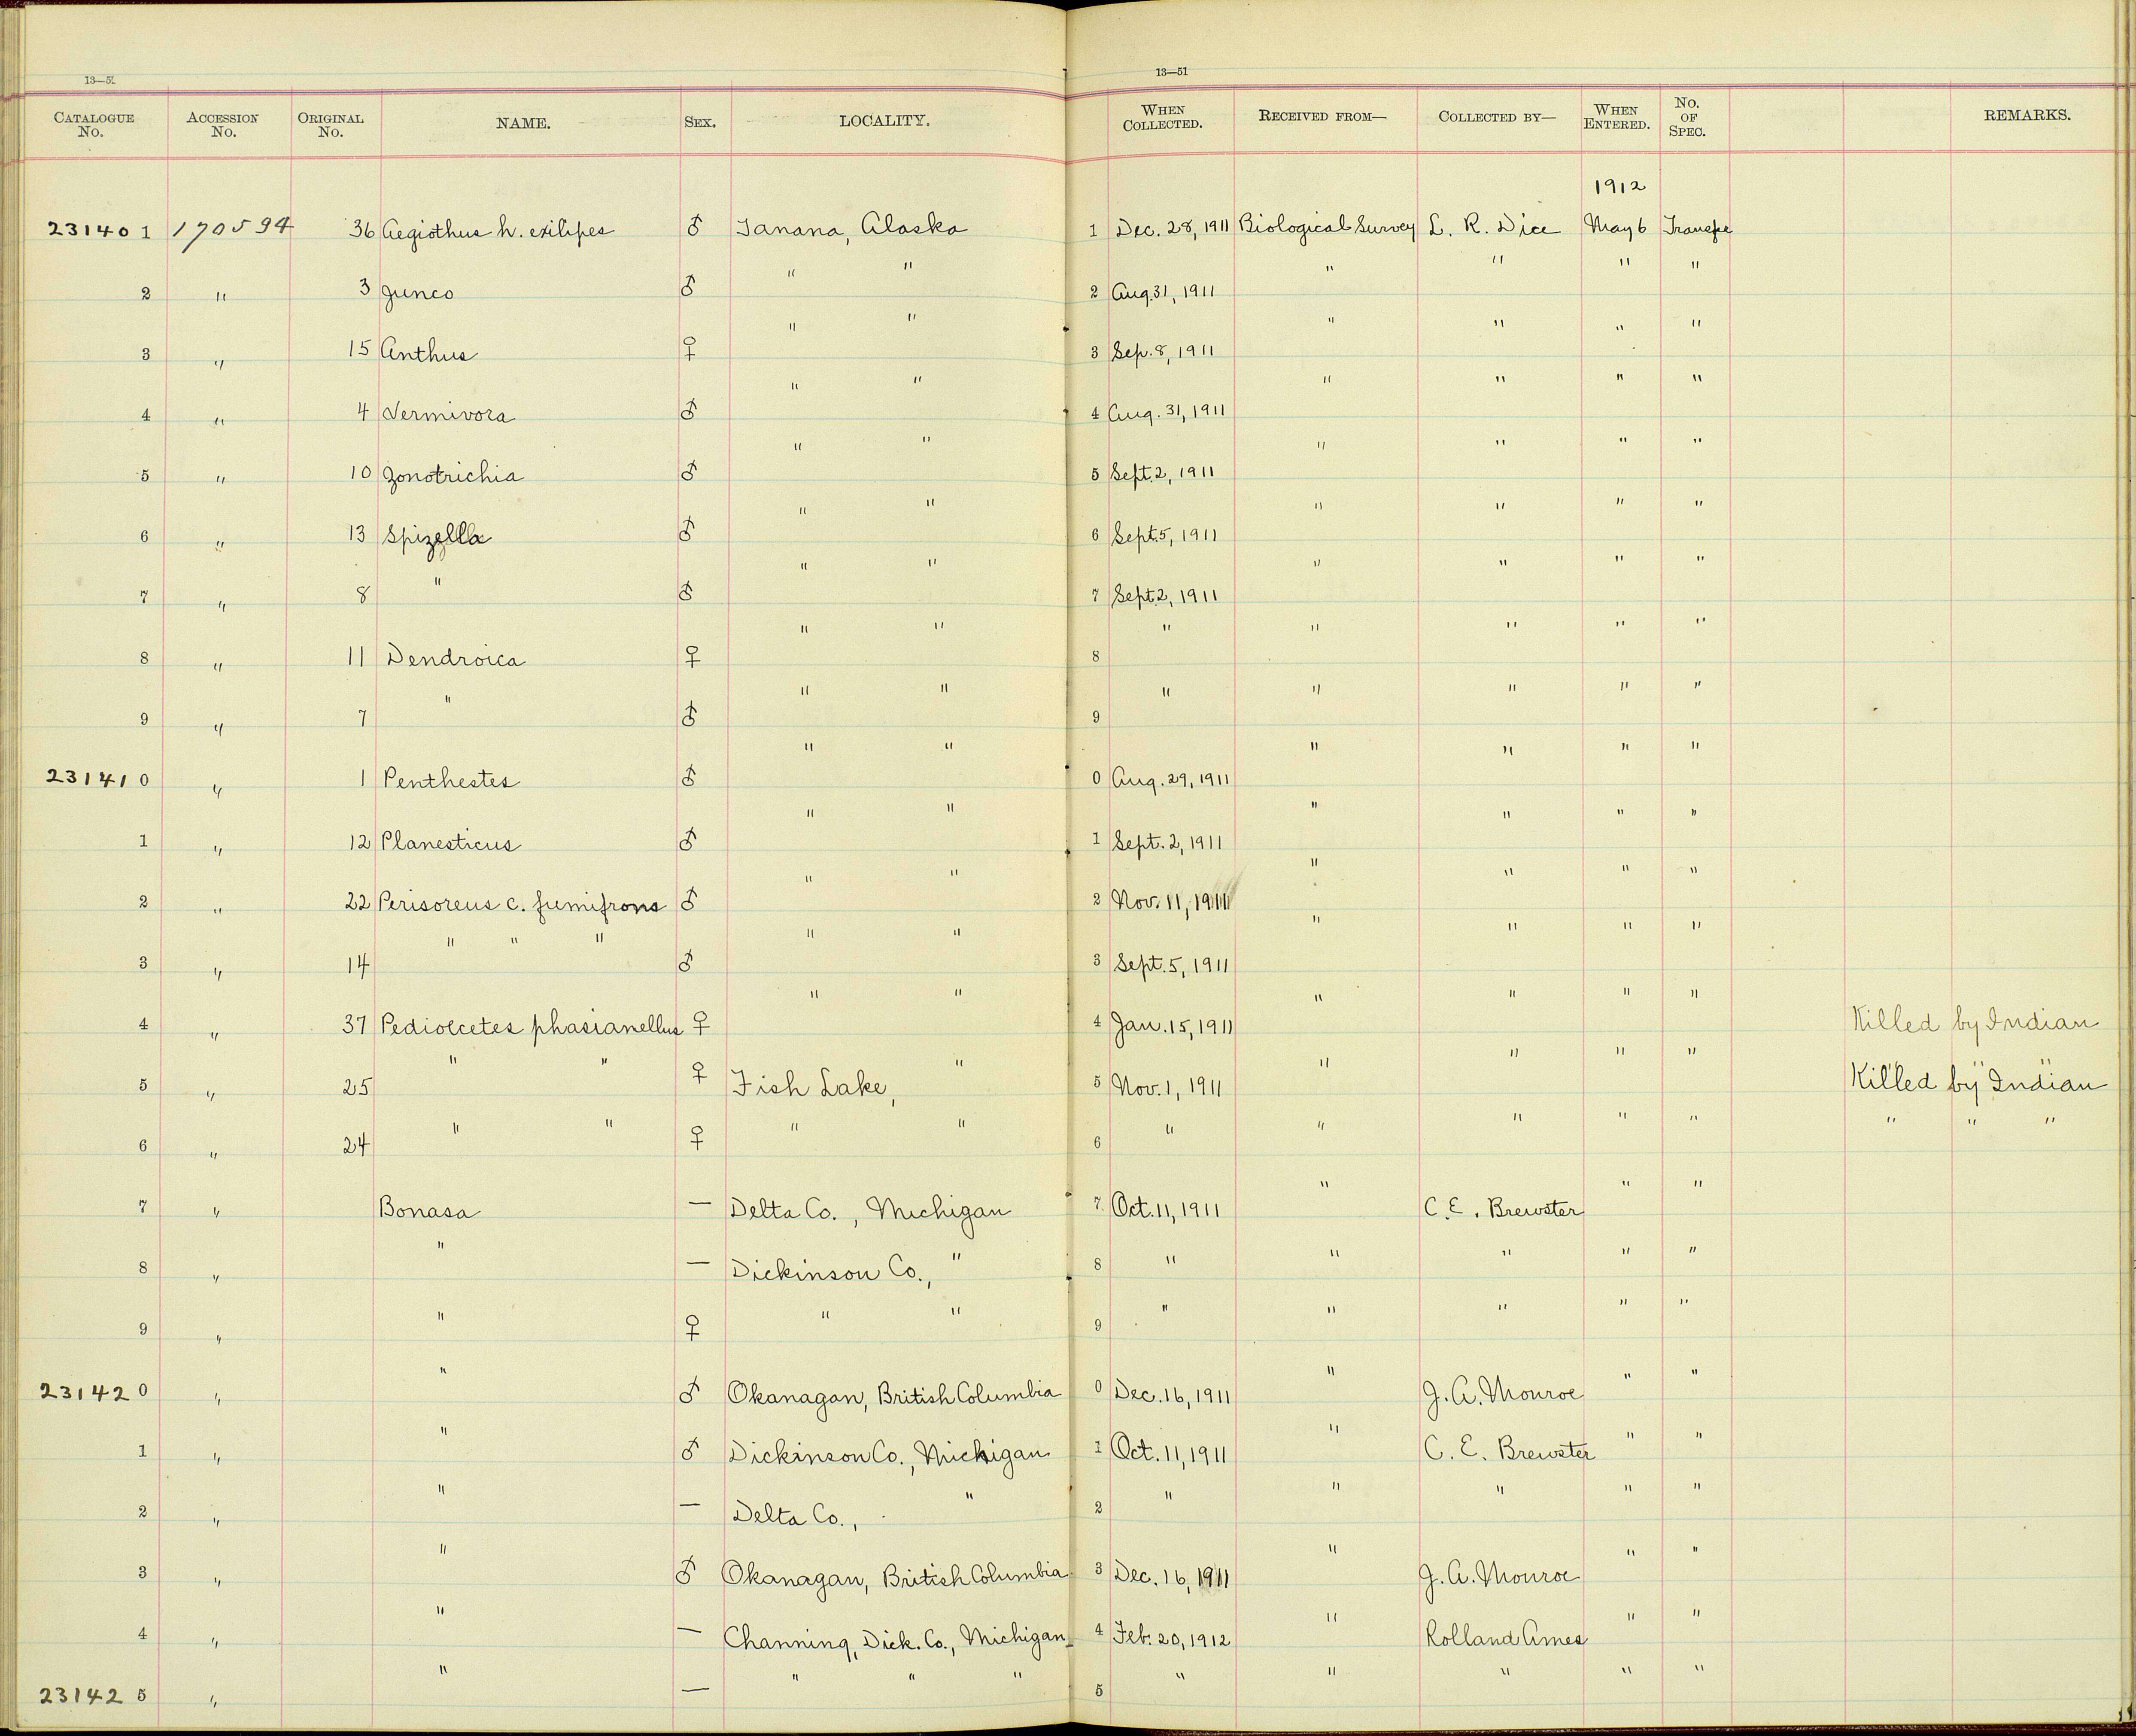 13—51 13—51
CATALOGUE No. ACCESSION No. ORIGINAL No. NAME. SEX. LOCALITY. WHEN COLLECTED. RECEIVED FROM— COLLECTED BY— WHEN ENTERED. No. OF SPEC. REMARKS.
1912
231401 170594 36 Aegiothus h. exilipes ♂ Tanana, Alaska 1 Dec. 28, 1911 Biological Survey L. R. Dice May 6 Transfe
2 " 3 Junco ♂ " " 2 Aug. 31, 1911 " " " "
3 " 15 Anthus ♀ " " 3 Sep. 8, 1911 " " " "
4 " 4 Vermivora ♂ " " 4 Aug. 31, 1911 " " " "
5 " 10 Zonotrichia ♂ " " 5 Sept. 2, 1911 " " " "
6 " 13 Spizella ♂ " " 6 Sept. 5, 1911 " " " "
7 " 8 " ♂ " " 7 Sept. 2, 1911 " " " "
8 " 11 Dendroica ♀ " " 8 " " " " "
9 " 7 " ♂ " " 9 " " " " "
231410 " 1 Penthestes ♂ " " 0 Aug. 29, 1911 " " " "
1 " 12 Planesticus ♂ " " 1 Sept. 2, 1911 " " " "
2 " 22 Perisoreus c. fumifrons ♂ " " 2 Nov. 11, 1911 " " " "
3 " 14 " " " ♂ " " 3 Sept. 5, 1911 " " " "
4 " 37 Pedioecetes phasianellus ♀ " " 4 Jan. 15, 1911 " " " " Killed by Indian
5 " 25 " " ♀ Fish Lake, " 5 Nov. 1, 1911 " " " " Killed by Indian
6 " 24 " " ♀ " " 6 " " " " " " " "
7 " Bonasa — Delta Co., Michigan 7 Oct. 11, 1911 " C. E. Brewster " "
8 " " — Dickinson Co., " 8 " " " " "
9 " " ♀ " " 9 " " " " "
231420 " " ♂ Okanagan, British Columbia 0 Dec. 16, 1911 " J. A. Monroe " "
1 " " ♂ Dickinson Co., Michigan 1 Oct. 11, 1911 " C. E. Brewster " "
2 " " — Delta Co., " 2 " " " " "
3 " " ♂ Okanagan, British Columbia 3 Dec. 16, 1911 " J. A. Monroe " "
4 " " — Channing, Dick. Co., Michigan 4 Feb. 20, 1912 " Rolland Ames " "
231425 " " — " " " 5 " " " " "